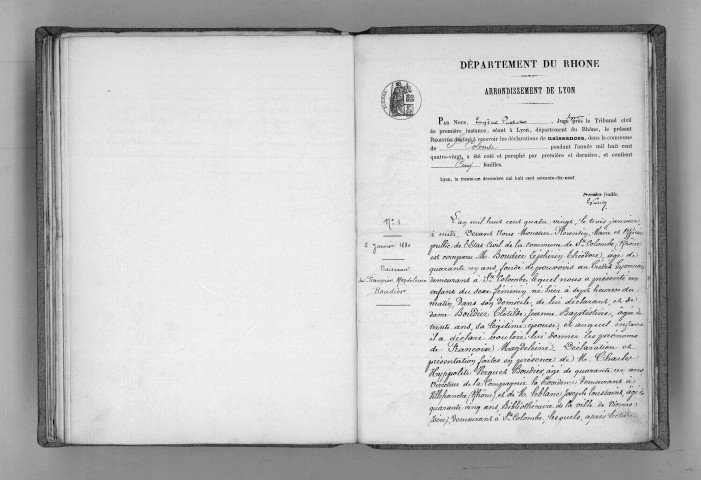 DÉPARTEMENT DU RHONE
ARRONDISSEMENT DE LYON
PAR NOUS, Eugène , Juge près le Tribunal civil
de première instance, séant à Lyon, département du Rhône, le présent
REGISTRE destiné à recevoir les déclarations de naissances, dans la commune
de Ste Colombe pendant l'année mil huit cent
quatre-vingt, a été coté et paraphé par première et dernière, et contient
feuilles.
Lyon, le trente-un décembre mil huit cent soixante-dix-neuf
Première feuille,
N° 1
2 Janvier 1880
Naissance
de Françoise Magdeleine
Boudier
L'an mil huit cent quatre vingt, le trois janvier
à midi, Devant Nous Florentin, Maire et officier
public de l'état civil de la commune de Ste Colombe, Rhône
est comparu Mr. Boudier Zéphirin Théodore, âgé de
quarante un ans, fondé de pouvoirs au Crédit Lyonnais
demeurant à Ste Colombe, lequel nous a présenté un
enfant du sexe féminin né hier à sept heures du
matin, dans son domicile, de lui déclarant, et de
dame Boudier Clotilde Jeanne Baptistine, âgée de
trente ans, sa légitime épouse, et auquel enfant
il a déclaré vouloir lui donner les prénoms
de Françoise Magdeleine. Déclaration et
présentation faites en présence de Mr. Charles
Hyppolite Boudier, âgé de quarante un ans
Directeur de la Compagnie la Providence demeurant à
Villefranche (Rhône), et de Mr. Leblanc Joseph Toussaint, âgé de
quarante cinq ans, Bibliothécaire de la ville de Vienne
(Isère), demeurant à Ste Colombe, lesquels, après lecture